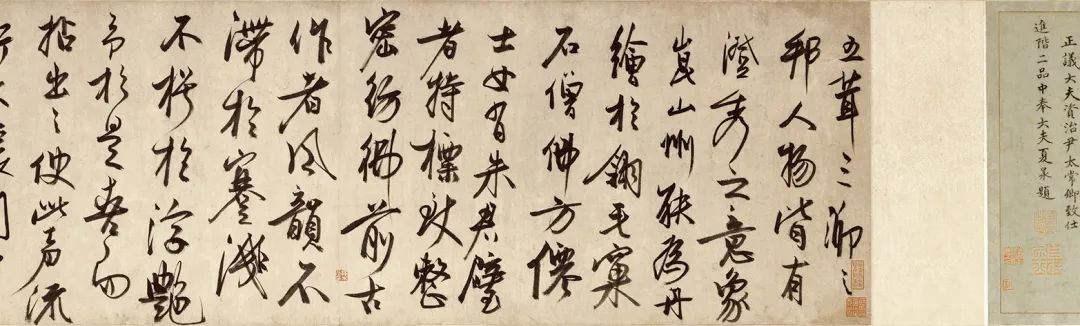 正議大夫資治尹太常卿致仕
進階二品中奉大夫夏㫤題
五茸三泖之
邦人物皆有
澄秀之意象
崑山州為丹
繪於翎毛窠
石僧佛方僊
士女有朱君璧
者特標致整
密彷彿前古
作者風韻不
滯於蹇澀
不於浮艷
予於是喜而
拈出之使此流